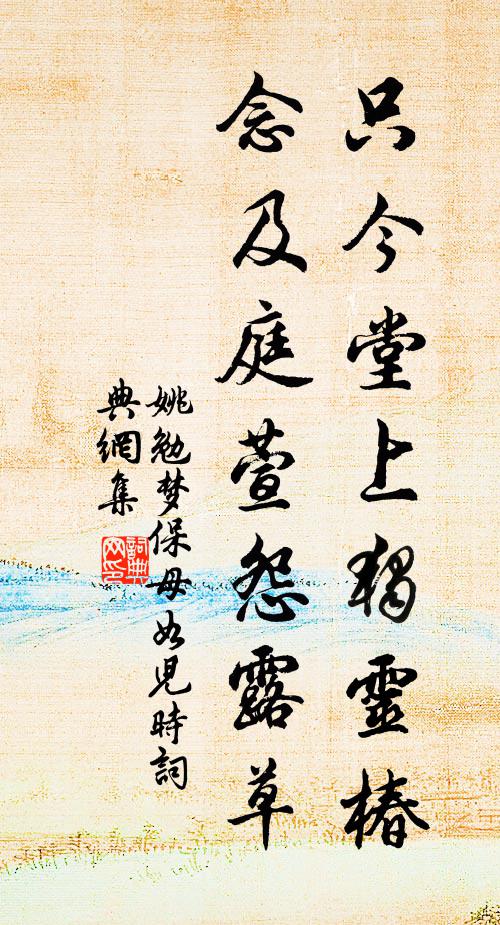 只今堂上獨靈椿
念及庭萱怨露草
姚勉梦保母如兒時詞
典網集
詞典
网印